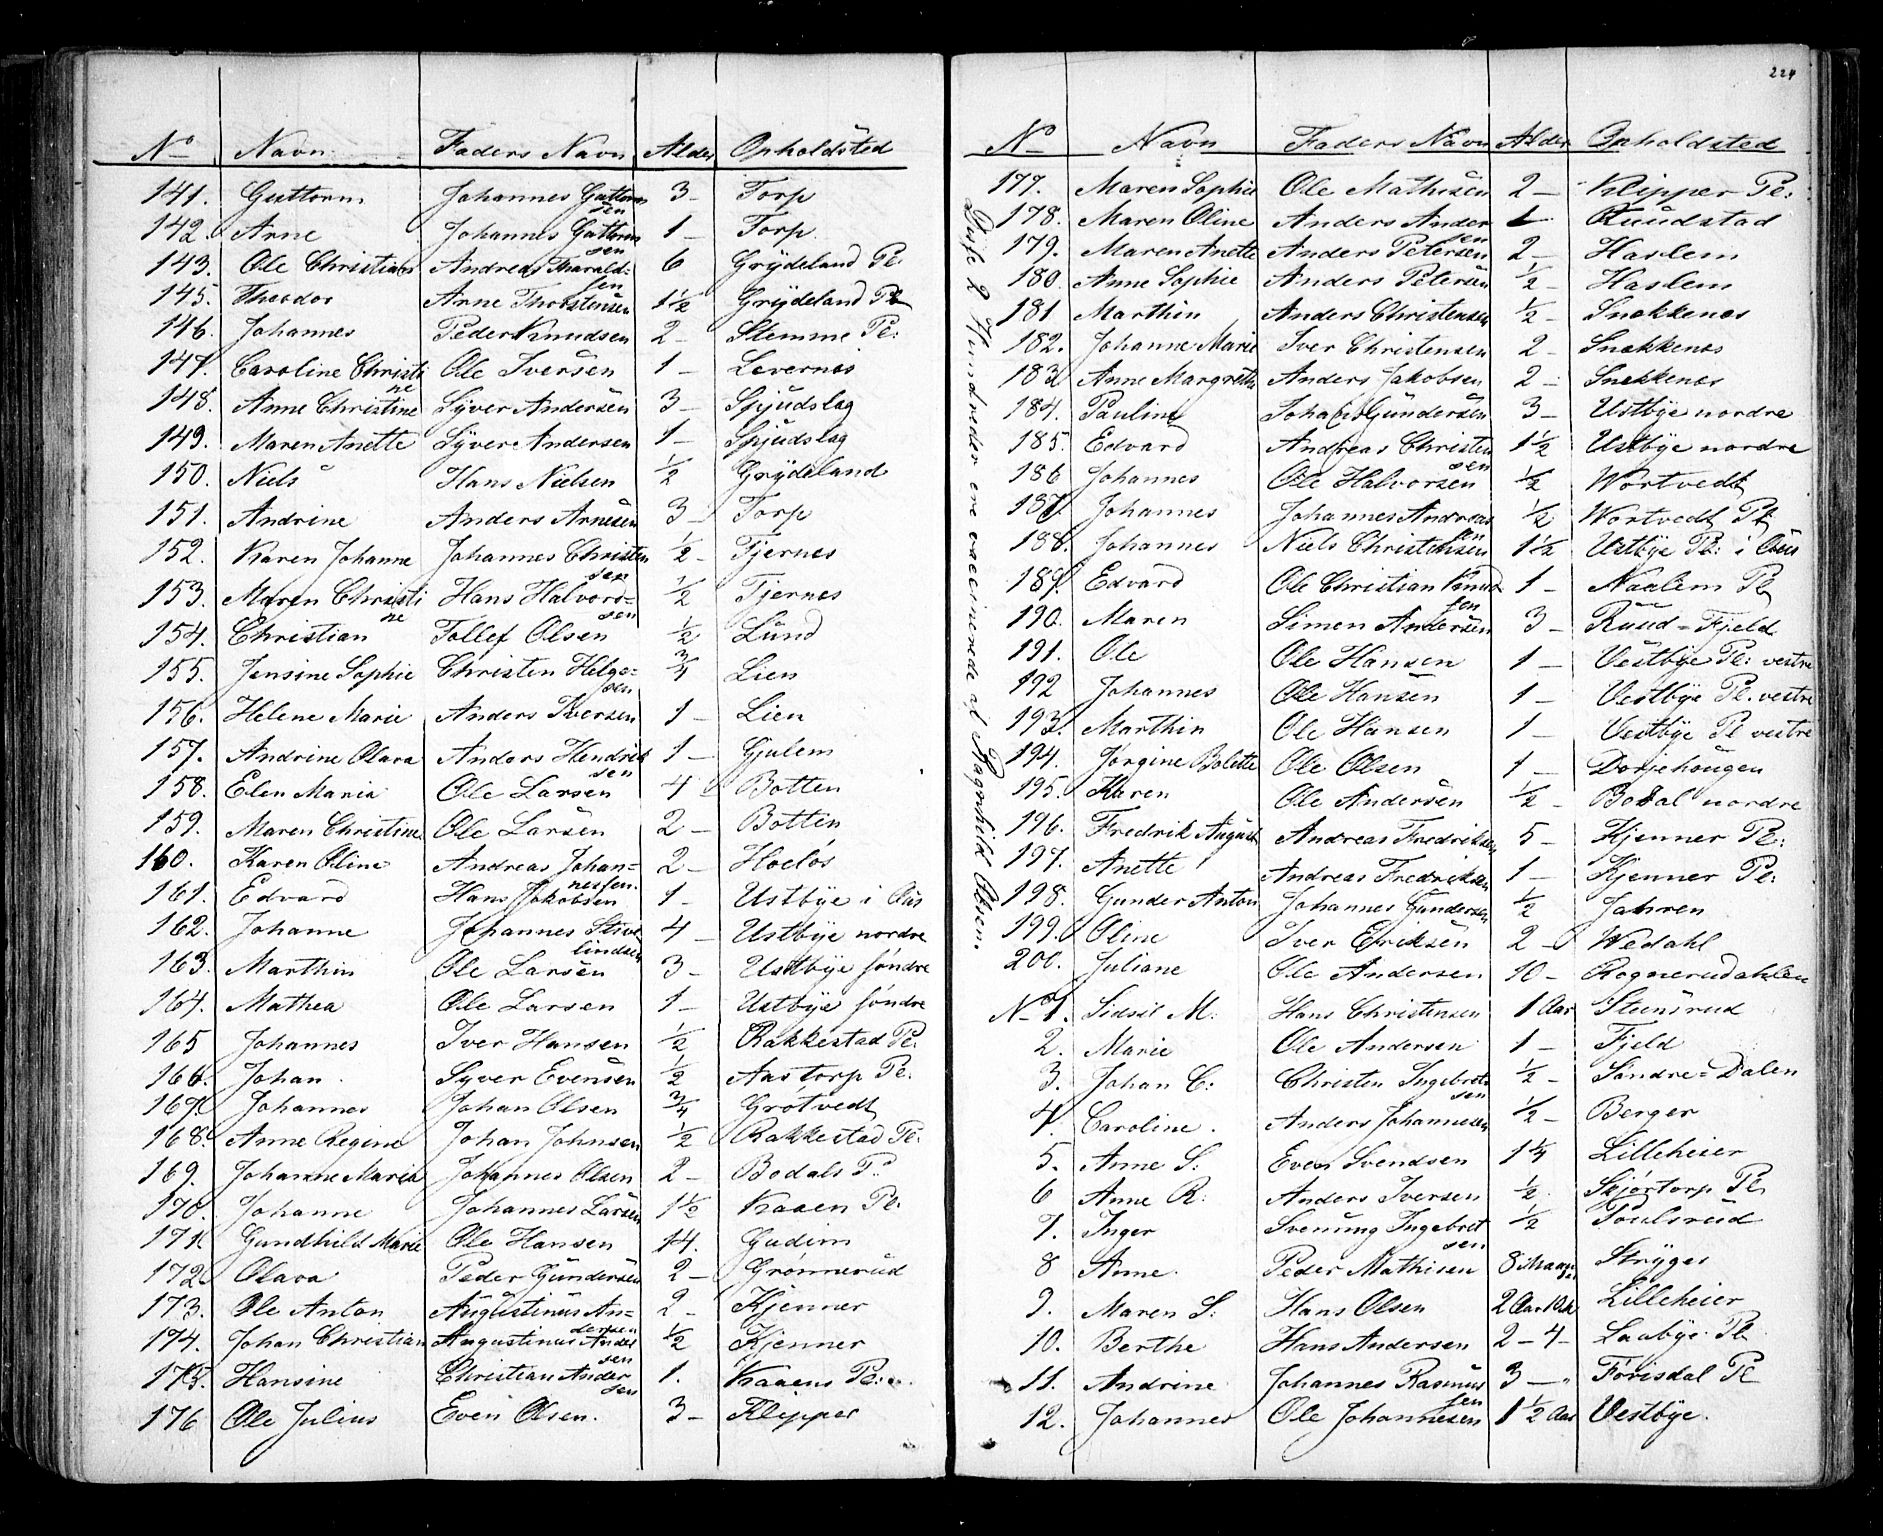 No Navn Faders Navn Alder Opholdsted
141. Guttorm Johannes Guttormsen 3 – Torp
142. Arne Johannes Guttormsen 1 – Torp
143. Ole Christian Andreas Tharaldsen 6 Grydeland Pl:
145. Theodor Arne Thorstensen 1½ Grydeland Pl
146. Johannes Peder Knudsen 2 – Stemme Pl:
147. Caroline Christine Ole Iversen 1 – Levernes
148. Anne Christine Syver Andersen 3 – Spjudslag
149. Maren Anette Syver Andersen 1 – Spjudslag
150. Niels Hans Nielsen ½ Grydeland
151. Andrine Anders Arnesen 3 – Torp
152. Karen Johanne Johannes Christensen ½ – Tjernes
153. Maren Christine Hans Halvorsen ½ Tjernes
154. Christian Tollef Olsen ½ Lund
155. Jensine Sophie Christen Helgesen ¾ Lien
156. Helene Marie Anders Iversen 1 – Lien
157. Andrine Olava Anders Hendriksen 1 – Gjulem
158. Elen Maria Ole Larsen 4 Botten
159. Maren Christine Ole Larsen 2 – Botten
160. Karen Oline Andreas Johannessen 2 – Hoeløs
161. Edvard Hans Jakobsen 1 – Ustbye i Aas
162. Johanne Johannes 4 – Ustbye nordre
163. Marthin Ole Larsen 3 – Ustbye søndre
164. Mathea Ole Larsen 1 – Ustbye søndre
165 Johannes Iver Hansen ½ Rakkestad Pl:
166. Johan Syver Evensen ½ Aastorp Pl:
169. Johannes Johan Olsen ¾ Grøtvedt
168. Anne Regine Johan Johnsen ½ Rakkestad Pl:
169. Johanne Maria Johannes Olsen 2 – Bodals P:
170. Johanne Johannes Larsen 1½ Kaaen Pl:
171. Gundhild Marie Ole Hansen 14. Gudim
172. Olava Peder Gundersen 2 – Grønnerud
173. Ole Anton Augustinus Andersen 2 – Kjenner
174. Johan Christian Augustinus Andersen ½ Kjenner
175. Hansine Christian Andersen 1. Kaaens Pl:
176 Ole Julius Even Olsen. 3 – Klipper
224
No Navn Faders Navn Alder Opholdsted
177. Maren Sophie Ole Mathisen 2 – Klipper Pl:
178. Maren Oline Anders Andersen 1 Ruudstad
179. Maren Anette Anders Petersen 2 – Haslem
180. Anne Sophie Anders Petersen ½ – Haslem
181. Marthin Anders Christensen ½ – Snekkenes
182. Johanne Marie Iver Christensen 2 – Snekkenes
183. Anne Margrethe Anders Jakobsen 2 – Snekkenes
184. Pauline Johan Gundersen 3 – Ustbye nordre
185. Edvard Andreas Christensen 1½ Ustbye nordre
186 Johannes Ole Halvorsen ½ Wortvedt
187. Johannes Johannes Andreassen ½ Wortvedt Pl
188. Johannes Niels Christensen 1½ Ustbye Pl: i Aas
189. Edvard Ole Christian Knudsen 1 – Naalem Pl
190. Maren Simen Andersen 3 – Ruud=Fjeld
191. Ole Ole Hansen 1 – Vestbye Pl: vestre
192 Johannes Ole Hansen 1 – Vestbye Pl. vestre
193. Marthin Ole Hansen 1 – Vestbye Pl vestre
194. Jørgine Bolette Ole Olsen 1 – Dorpehougen
195. Karen Ole Andersen ½ – Bodal nordre
196. Fredrik August Andreas Fredriksen 5 – Kjenner Pl:
197. Anette Andreas Fredriksen 1 – Kjenner Pl:
198. Gunder Anton Johannes Gundersen ½ Jahren
199. Oline Iver Eriksen 2 – Wedahl
200. Juliane Ole Andersen 10 – Rognerudahlen
Disse 2 Hundreder ere vaccinerede af Ragnhild Olsen.
No 1. Sidsil M: Hans Christensen 1 Aar Steensrud
2. Marie Ole Andersen 1 – Fjeld
3. Johan C: Christen Ingebretsen ½ – Søndre=Dalen
4. Caroline. Anders Johannesen ½ – Berger
5. Anne S: Even Svendsen 1¼ Lilleheier
6 Anne R: Anders Iversen ½ Skjørtorp Pl
7. Inger Svenung Ingebretsen ½ – Poulsrud
8 Anne. Peder Mathisen 8 Stryger
9. Maren S: Hans Olsen 2 Aar 10 Lilleheier
10. Berthe Hans Andersen 2 – 4 – Laabye Pl
11. Andrine Johannes Rasmussen 3 – " Førisdal Pl
12. Johannes Ole Johannesen 1½ Aar Vestbye.